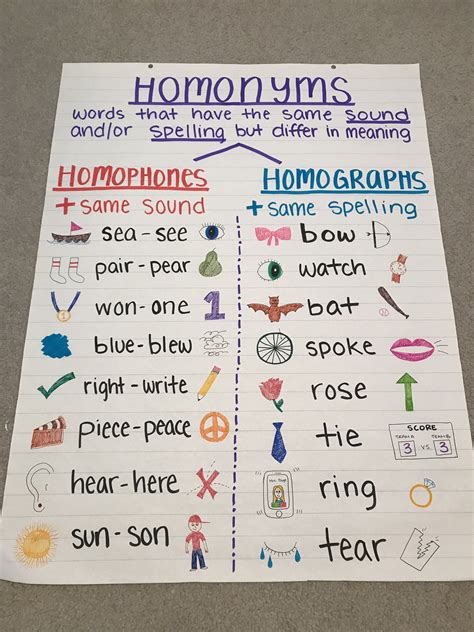 HOMONYMS
words that have the same sound
and/or spelling but differ in meaning
HOMOPHONES
+ same sound
sea - see
pair - pear
won - one
1
blue - blew
right - write
piece - peace
hear - here
sun - son
HOMOGRAPHS
+ same spelling
bow
watch
bat
spoke
rose
tie
SCORE
TEAM A TEAM B
3 VS. 3
ring
tear